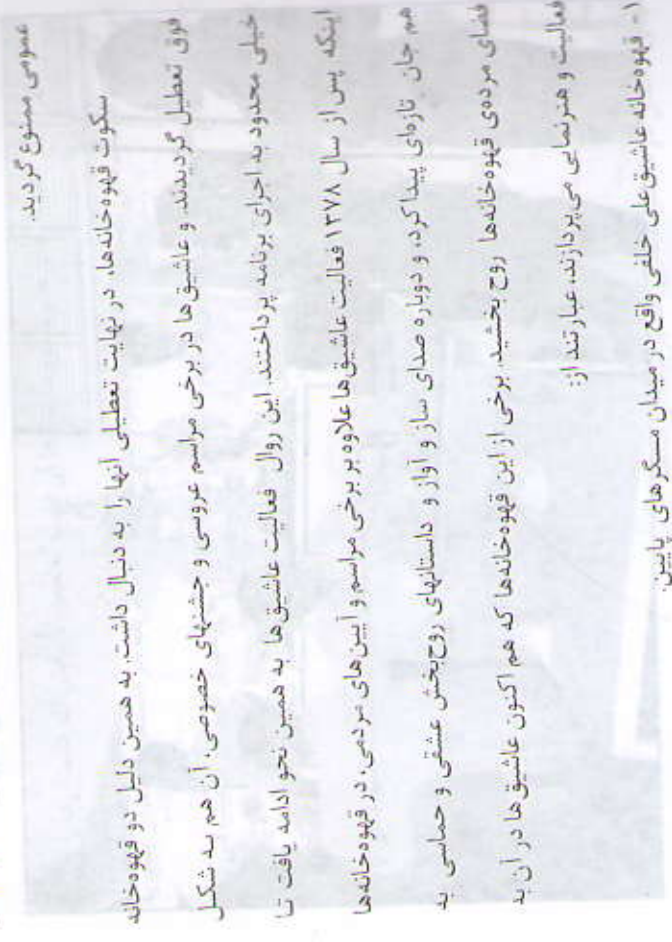 عمومی ممنوع گردید.
سکوت قهوه‌خانه‌ها، در نهایت تعطیلی آنها را به دنبال داشت. به همین دلیل دو قهوه‌خانه
فوق تعطیل گردیدند. و عاشیق‌ها در برخی مراسم عروسی و جشنهای خصوصی، آن هم به شکل
خیلی محدود به اجرای برنامه پرداختند. این روال فعالیت عاشیق‌ها به همین نحو ادامه یافت تا
اینکه پس از سال ۱۳۷۸ فعالیت عاشیق‌ها علاوه بر برخی مراسم و آیین‌های مردمی، در قهوه‌خانه‌ها
هم جان تازه‌ای پیدا کرد، و دوباره صدای ساز و آواز و داستانهای روح‌بخش عشقی و حماسی به
فضای مرده‌ی قهوه‌خانه‌ها روح بخشید. برخی از این قهوه‌خانه‌ها که هم اکنون عاشیق‌ها در آن به
فعالیت و هنرنمایی می‌پردازند، عبارتند از:
۱- قهوه‌خانه عاشیق علی خلفی واقع در میدان مسگرهای پایین.